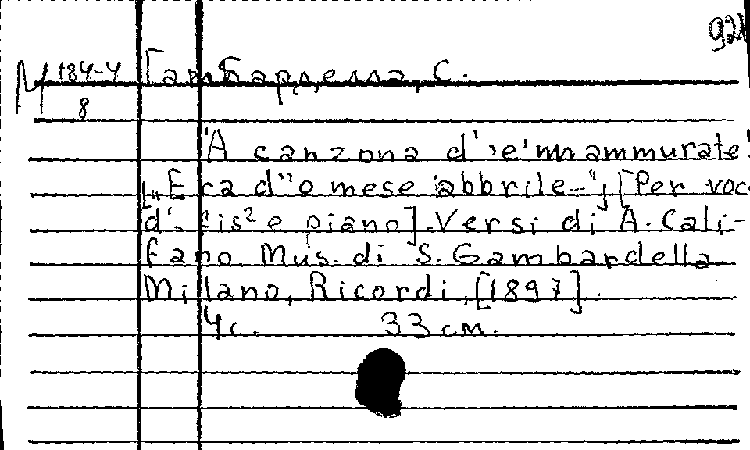 92
M 184-4 Гамбарделла, С.
8
'A canzona d' 'e 'nnammurate!
["E ra d" o mese 'abbrile-"] [Per voc
d'-fis² e piano]. Versi di A. Cali-
fano. Mus. di S. Gambardella
Milano, Ricordi, [1897].
4 с. 33 см.